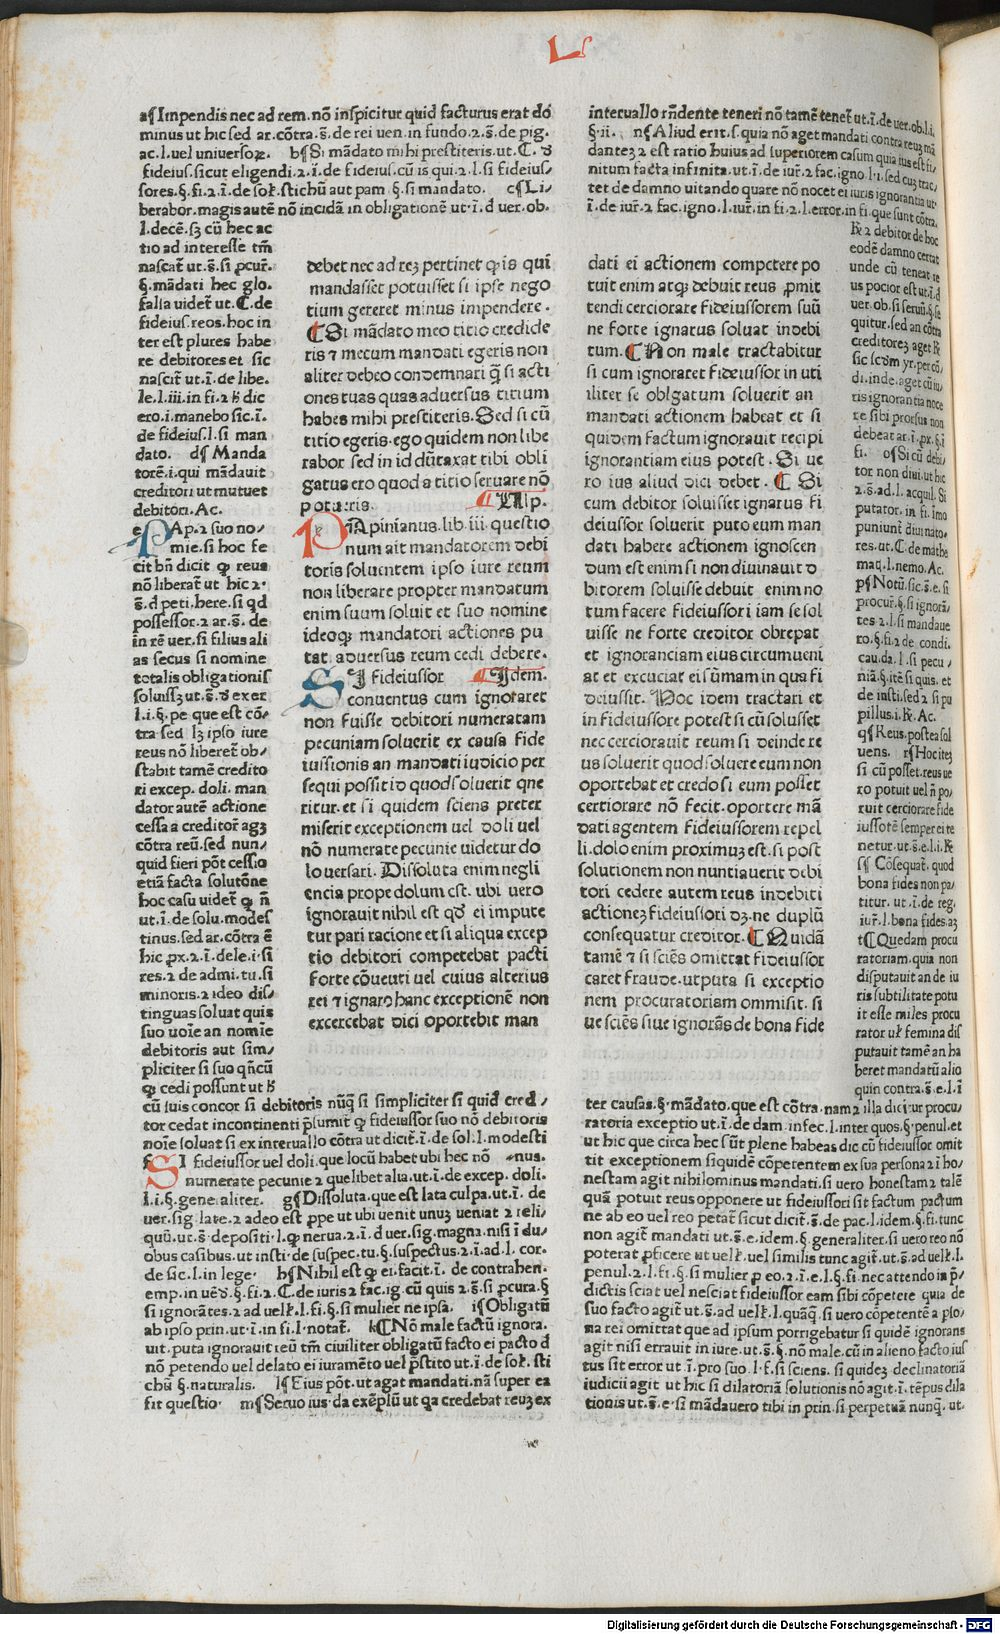 L
a¶Impendis nec ad rem. nō inspicitur quid facturus erat do
minus ut hic sed ar. cōtra. s̄. de rei uen. in fundo. 2. s̄. de pig.
ac. l. uel
b¶Si mādato mihi prestiteris. ut. C. d
fideius. sicut eligendi. 2. ī. de fideius. cū is qui. 2. l. si fideius/
sores. §. fi. 2. ī. de soł. stichū aut pam §. si mandato. c¶Li/
berabor. magis autē nō incidā in obligationē ut. ī. d uer. ob.
l. decē. sꝫ cū hec ac
tio ad interesse tm̄
nascat̄ ut. s̄. si ꝓcur̄.
§. mādati hec glo.
falsa uidet̄ ut. C. de
fideius. reos. hoc in
ter est plures habe
re debitores et sic
nascit̄ ut. ī. de libe.
le. l. iii. in fi. 2 ꝶ dic
ero. i. manebo sic. ī.
de fideius. l. si man
dato. d¶Manda
torē. i. qui mādauit
creditori ut mutuet
debitori. Ac.
e PAp. 2 suo no/
mie. si hoc fe
cit bn̄ dicit ꝙ reus
nō liberat̄ ut hic 2.
s̄. d peti. here. si qd
possessor. 2 ar. s̄. de
in rē uer. si filius ali
as secus si nomine
totalis obligationis
soluissꝫ ut. s̄. d exer
l. i. §. pe que est cō/
tra sed lꝫ ipso iure
reus nō liberet̄ ob/
stabit tamē credito
ri excep. doli. man
dator autē actione
cessa a creditor̄ agꝫ
cōtra reū. sed nun/
quid fieri pōt cessio
etiā facta solutōne
hoc casu uidet̄ ꝙ n̄
ut. ī. de solu. modes
tinus. sed ar. cōtra ē
hic ꝓx. 2. ī. dele. i. si
res. 2 de admi. tu. si
minoris. 2 ideo dis/
tinguas soluat quis
suo uoīe an nomie
debitoris aut sim/
pliciter si suo qn̄cū
ꝙ cedi possunt ut ꝶ
cū suis concor si debitoris nūꝗ si simpliciter si quid cred/
tor cedat incontinenti p̄sumit̄ ꝙ fideiussor suo nō debitoris
noīe soluat si ex interuallo cōtra ut dicit̄. ī. de sol. l. modesti
SI fideiussor uel doli. que locū habet ubi hec nō nus.
numerate pecunie 2 quelibet alia. ut. ī. de excep. doli.
l. i. §. generaliter. g¶Dissoluta. que est lata culpa. ut. ī. de
uer. sig. late. 2 adeo est ꝓpe ut ubi uenit unuꝫ ueniat 2 reli/
quū. ut. s̄. depositi. l. ꝙ nerua. 2. ī. d uer. sig. magna. nisi ī du/
obus casibus. ut insti. de suspec. tu. §. suspectus. 2. ī. ad. l. cor.
de sic. l. in lege. h¶Nihil est ꝙ ei. facit. ī. de contrahen.
emp. in uēd. §. fi. 2. C. de iuris 2 fac. ig. cū quis 2. s̄. si ꝓcura. §
si ignorātes. 2 ad uełł. l. fi. §. si mulier ne ipsa. i¶Obligatū
ab ipso prin. ut. ī. in fi. l. notat̄. k¶Nō male factū ignora.
uit. puta ignorauit reū tm̄ ciuiliter obligatū facto ei pacto d
nō petendo uel delato ei iuramēto uel p̄stito ut. ī. de soł. sti
chū §. naturalis. l¶Eius pōt. ut agat mandati. nā super ea
fit questio. m¶Seruo ius. da exēplū ut qa credebat reuꝫ ex
debet nec ad reꝫ pertinet ꝙ is qui
mandasset potuisset si ipse nego
tium gereret minus impendere.
¶Si mādato meo titio credide
ris ⁊ mecum mandati egeris non
aliter debeo condemnari ꝗ̄ si acti
ones tuas quas aduersus titium
habes mihi prestiteris. Sed si cū
titio egeris. ego quidem non libe
rabor sed in id dūtaxat tibi obli
gatus ero quod a titio seruare nō
potueris. ¶Alp.
PApinianus. lib. iii. questio
num ait mandatorem debi
toris soluentem ipso iure reum
non liberare propter mandatum
enim suum soluit et suo nomine
ideoqꝫ mandatori actiones pu
tat. aduersus reum cedi debere.
SI fideiussor ¶Idem.
conuentus cum ignoraret
non fuisse debitori numeratam
pecuniam soluerit ex causa fide
iussionis an mandati iudicio per
sequi possit id quod soluerit que
ritur. et si quidem sciens preter
miserit exceptionem uel doli uel
nō numerate pecunie uidetur do
lo uersari. Dissoluta enim negli
encia prope dolum est. ubi uero
ignorauit nihil est qd̄ ei impute
tur pari racione et si aliqua excep
tio debitori competebat pacti
forte cōuenti uel cuius alterius
rei ⁊ ignarꝰ hanc exceptionē non
excercebat dici oportebit man
interuallo rn̄dente teneri nō tamē tenet̄ ut. ī. de uer. ob. l. i.
§. ii. n¶Aliud erit. s. quia nō aget mandati contra reuꝫ mā
danteꝫ 2 est ratio huius ad superiorem casum quia ius est fi/
nitum facta infinita. ut. ī. de iur̄. 2 fac. igno. l. i. sed cuꝫ trac/
tet de damno uitando quare nō nocet ei iuris ignorantia ut.
ī. de iur̄. 2 fac. igno. l. iur̄. in fi. 2. l. error. in fi. que sunt cōtra.
ꝶ 2 debitor de hoc
eodē damno certat
unde cū teneat̄ re
us pocior est ut. ī. d
uer. ob. si seruū. §. se
quitur. sed an cōtra
creditoreꝫ aget ꝶ
sic scdm yr. per cō/
di. inde. aget cū iu/
ris ignorantia noce
re sibi prorsus non
debeat ar. ī. ꝓx. §. ī
fi. o¶Si cū debi/
tor non diui. ut hic
2. s̄. ad. l. acquil. Si
putator. in fi. imo
puniunt̄ diuinato/
res. ut. C. de mathe
maꝗ. l. nemo. Ac.
p¶Notū. sic. s̄. e. si
procur̄. §. si ignorā/
tes 2. l. si mandaue
ro. §. fi. 2 de condi.
cau. da. l. si pecu/
niā. §. itē si quis. et
de insti. sed 2 si pu
pillus. i. ꝶ. Ac.
q¶Reus. postea sol
uens. r¶Hoc iteꝫ
si cū posset. reus ue
ro potuit uel n̄ po/
ruit cerciorare fide
iussorē semper ei te
netur. ut. s̄. e. l. i. ꝶ
s¶ Cōsequat̄. quod
bona fides non pa/
titur. ut. ī. de reg.
iur̄. l. bona fides. aꝫ
t¶Quedam procu
ratoriam. quia non
disputauit an de iu
ris subtilitate potu
it esse miles procu
rator uł femina dis
putauit tamē an ha
beret mandatū alio
quin contra. s̄. e. l. ī
ter causas. §. mādato. que est cōtra. nam 2 illa dicit̄ur procu/
ratoria exceptio ut. ī. de dam. infec. l. inter quos. §. penul. et
ut hic que circa hec sūt plene habeas dic cū fideiussor omit
tit exceptionem siquidē cōpetentem ex sua persona 2 ī ho/
nestam agit nihilominus mandati. si uero honestam 2 talē
quā potuit reus opponere ut fideiussori sit factum pactum
ne ab eo uel reo petat̄ sicut dicit̄. s̄. de pac. l. idem. §. fi. tunc
non agit̄ mandati ut. s̄. e. idem. §. generaliter. si uero reo nō
poterat ꝓficere ut uełł. uel similis tunc agit̄. ut. s̄. ad uełł. l.
penul. 2. l. fi. §. si mulier ꝓ eo. 2. ī. e. l. §. fi. nec attendo in p̄/
dictis sciat uel nesciat fideiussor eam sibi cōpetere quia de
suo facto agit̄ ut. s̄. ad uełł. l. quāꝗ. si uero cōpetentē a pso/
na rei omittat que ad ipsum porrigebatur si quidē ignorans
agit nisi errauit in iure. ut. s̄. §. nō male. cū in alieno facto ius
tus sit error ut. ī. pro suo. l. f. si sciens. si quideꝫ declinatoriā
iudicii agit ut hic si dilatoriā solutionis nō agit. ī. tēpus dila
tionis ut. s̄. e. si māda uero tibi in prin. si perpetuā nunꝗ. ut.
dati ei actionem competere po
tuit enim atqꝫ debuit reus ꝓmit
tendi cerciorare fideiussorem suū
ne forte ignarus soluat indebi
tum. ¶Non male tractabitur
si cum ignoraret fideiussor in uti
liter se obligatum soluerit an
mandati actionem habeat et si
quidem factum ignorauit recipi
ignorantiam eius potest. Si ue
ro ius aliud dici debet. ¶ Si
cum debitor soluisset ignarus fi
deiussor soluerit puto eum man
dati habere actionem ignoscen
dum est enim si non diuinauit d
bitorem soluisse debuit enim no
tum facere fideiussori iam se sol
uisse ne forte creditor obrepat
et ignoranciam eius circumueni
at et excuciat ei sūmam in qua fi
deiussit. Hoc idem tractari et
in fideiussore potest si cū solusset
nec cerciorauit reum si deinde re
us soluerit quod soluere eum non
oportebat et credo si eum posset
certiorare nō fecit. oportere mā
dati agentem fideiussorem repel
li. dolo enim proximuꝫ est. si post
solutionem non nuntiauerit debi
tori cedere autem reus indebiti
actioneꝫ fideiussori dꝫ. ne duplū
consequatur creditor. ¶Quidā
tamē ⁊ si sciēs omittat fideiussor
caret fraude. utputa si exceptio
nem procuratoriam ommisit. si
ue sciēs siue ignorās de bona fide
Digitalisierung gefördert durch die Deutsche Forschungsgemeinschaft - DFG